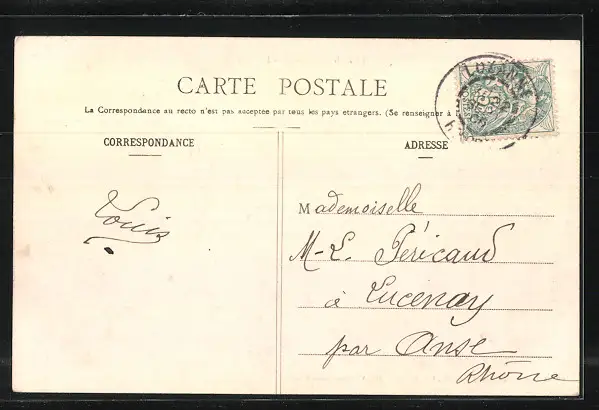 CARTE POSTALE
La Correspondance au recto n'est pas acceptée par tous les pays etrangers. (Se renseigner à
CORRESPONDANCE
ADRESSE
Louis
Mademoiselle
M-L. Péricaud
à Lucenay
par Anse
Rhône